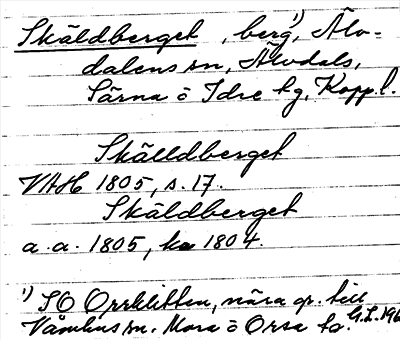 Skäldberget, berg,¹) Älv-
dalens sn, Älvdals,
Särna ö Idre tg, Kopp.l.
Skälldberget
VAH 1805, s. 17.
Skäldberget
a.a. 1805, ka 1804.
¹) SO Orrklitten, nära gr. till
Våmhus sn. Mora ö Orsa tg. G.L. 196